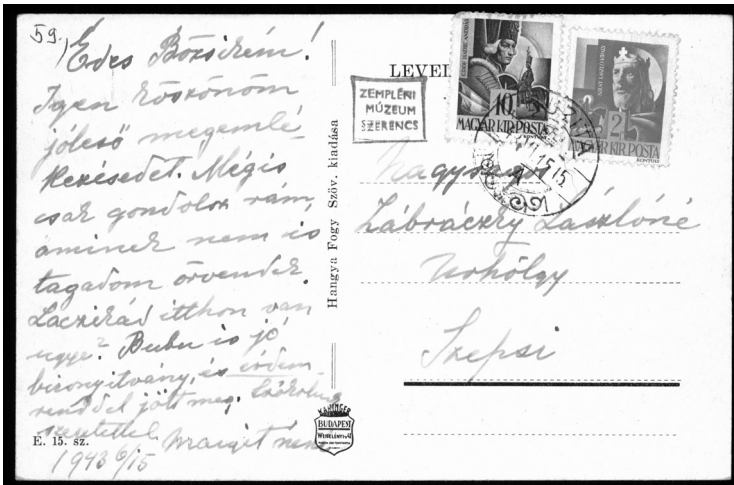 59.
Édes Bözsikém!
Igen köszönöm
jóleső megemlé-
kezésedet. Mégis
csak gondolsz rám,
aminek nem is
tagadom örvendek.
Laczikád itthon van
ugye? Bubu is jó
bizonyítvány, és érdem-
renddel jött meg.
szeretettel Margit néni
1943 6/15
E. 15. sz.
Hangya Fogy. Szöv. kiadása
KARINGER
BUDAPEST
ZEMPLÉNI
MÚZEUM
SZERENCS
LEVEL
10
MAGYAR KIR. POSTA
2
MAGYAR KIR. POSTA
Nagyságos
Zábráczky Lászlóné
úrhölgy
Szepsi